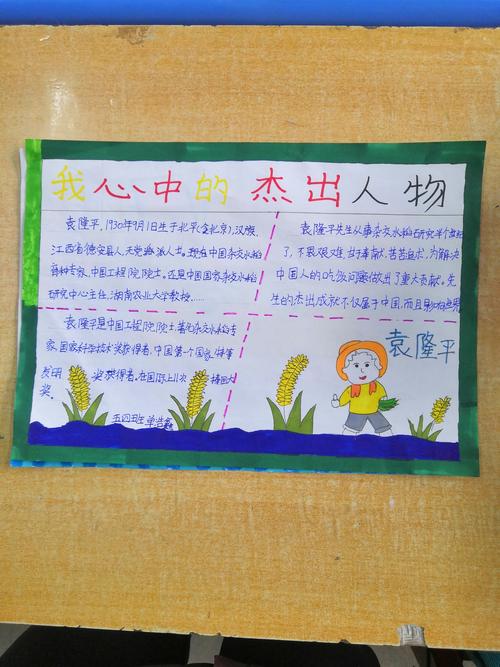 我心中的杰出人物
袁隆平，1930年9月1日生于北平(今北京)，汉族，
江西省德安县人，无党派人士。现在中国杂交水稻
育种专家，中国工程院院士。还是中国国家杂交水稻
研究中心主任，湖南农业大学教授……
袁隆平先生从事杂交水稻研究半个世纪
了，不畏艰难，甘于奉献，苦苦追求，为解决
中国人的吃饭问题做出了重大贡献。先
生的杰出成就不仅属于中国，而且影响世界
袁隆平是中国工程院院士，著名杂交水稻专
家，国家科学技术奖获得者，中国第一个国家特等
发明奖获得者。在国际上11次
奖。
五四班
袁隆平